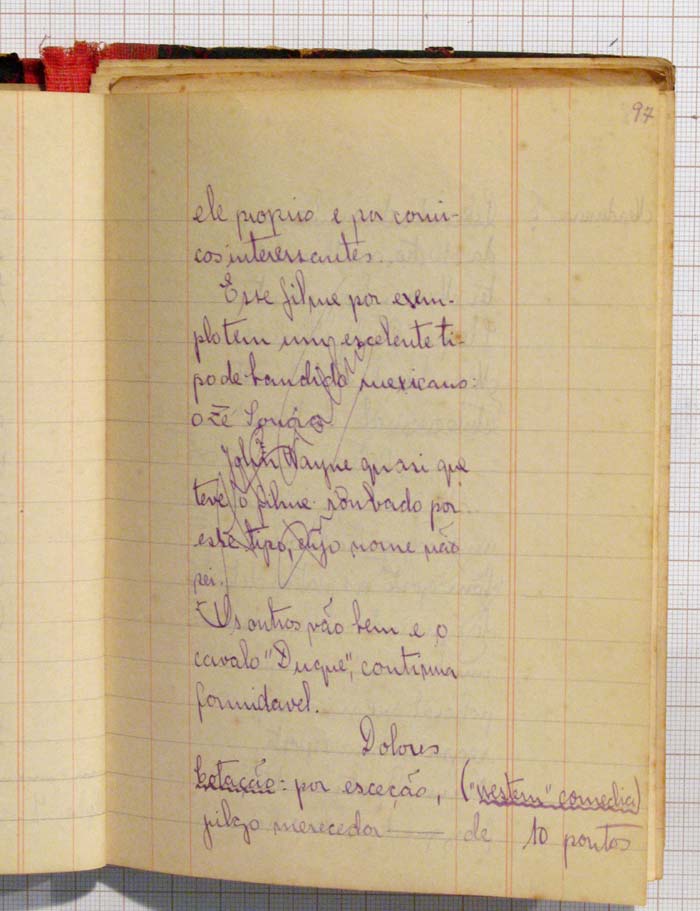 97
ele proprio e por comi-
cos interessantes.
Esse filme por exem-
plo tem um excelente ti-
po de bandido mexicano:
o Zé
John Wayne quasi que
teve o filme roubado por
esse tipo, cujo nome não
sei.
Os outros vão bem e o
cavalo "Duque", continua
formidavel.
Dolores
Cotação: por exceção, ("western" comedia)
julgo merecedor —— de 10 pontos